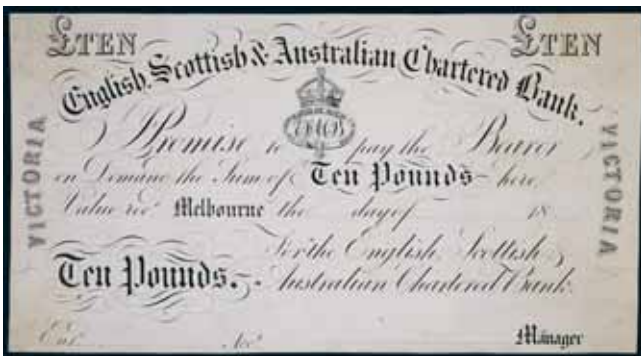 £TEN £TEN
English, Scottish & Australian Chartered Bank.
VICTORIA
I Promise to pay the Bearer
on Demand the Sum of Ten Pounds here,
Value recd Melbourne the day of 18
For the English, Scottish &
Ten Pounds. Australian Chartered Bank.
Entd Acct Manager
VICTORIA